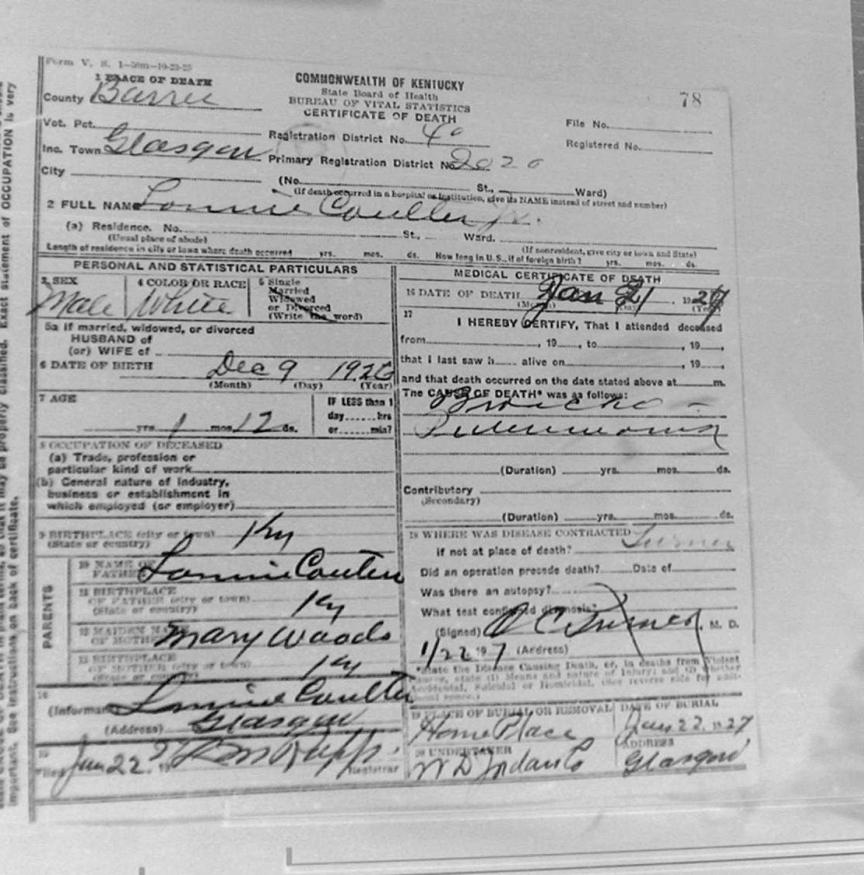 Form V. S. 1-50m-10-23-25
1 PLACE OF DEATH
County Barren
COMMONWEALTH OF KENTUCKY
State Board of Health
BUREAU OF VITAL STATISTICS
CERTIFICATE OF DEATH
78
File No.
Registered No.
Vot. Pct.
Registration District No. 40
Inc. Town Glasgow
Primary Registration District No. 2020
City
(No. St., Ward)
(If death occurred in a hospital or institution, give its NAME instead of street and number)
2 FULL NAME Lonnie Coulter Jr.
(a) Residence. No. St., Ward.
(Usual place of abode) (If nonresident, give city or town and State)
Length of residence in city or town where death occurred yrs. mos. ds. How long in U.S., if of foreign birth? yrs. mos. ds.
PERSONAL AND STATISTICAL PARTICULARS
3 SEX
Male
4 COLOR OR RACE
White
5 Single
Married
Widowed
or Divorced
(Write the word)
5a If married, widowed, or divorced
HUSBAND of
(or) WIFE of
6 DATE OF BIRTH Dec 9 1926
(Month) (Day) (Year)
7 AGE
yrs. 1 mos. 12 ds.
IF LESS than 1
day hrs
or min?
8 OCCUPATION OF DECEASED
(a) Trade, profession or
particular kind of work
(b) General nature of industry,
business or establishment in
which employed (or employer)
9 BIRTHPLACE (city or town) Ky
(State or country)
PARENTS
10 NAME OF
FATHER Lonnie Coulter
11 BIRTHPLACE
OF FATHER (city or town) Ky
(State or country)
12 MAIDEN NAME
OF MOTHER Mary Woods
13 BIRTHPLACE
OF MOTHER (city or town) Ky
(State or country)
14
(Informant Lonnie Coulter
(Address) Glasgow
15
Filed Jan 22, 19
Registrar
MEDICAL CERTIFICATE OF DEATH
16 DATE OF DEATH Jan 21, 1927
(Month) (Day) (Year)
17
I HEREBY CERTIFY, That I attended deceased
from , 19 , to , 19 ,
that I last saw h alive on , 19 ,
and that death occurred on the date stated above at m.
The CAUSE OF DEATH* was as follows:
Broncho -
Pneumonia
(Duration) yrs. mos. ds.
Contributory
(Secondary)
(Duration) yrs. mos. ds.
18 WHERE WAS DISEASE CONTRACTED
if not at place of death?
Did an operation precede death? Date of
Was there an autopsy?
What test confirmed diagnosis?
(Signed) C Turner, M. D.
1/22 19 7 (Address)
*State the Disease Causing Death, or, in deaths from Violent
19 PLACE OF BURIAL OR REMOVAL
Home Place
DATE OF BURIAL
Jan 22, 1927
20 UNDERTAKER
W D Jordan
ADDRESS
Glasgow